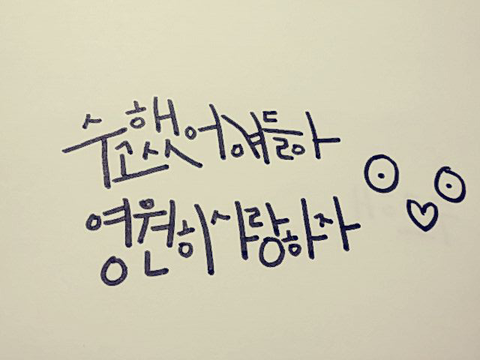 수고했어얘들아
영원히사랑하자